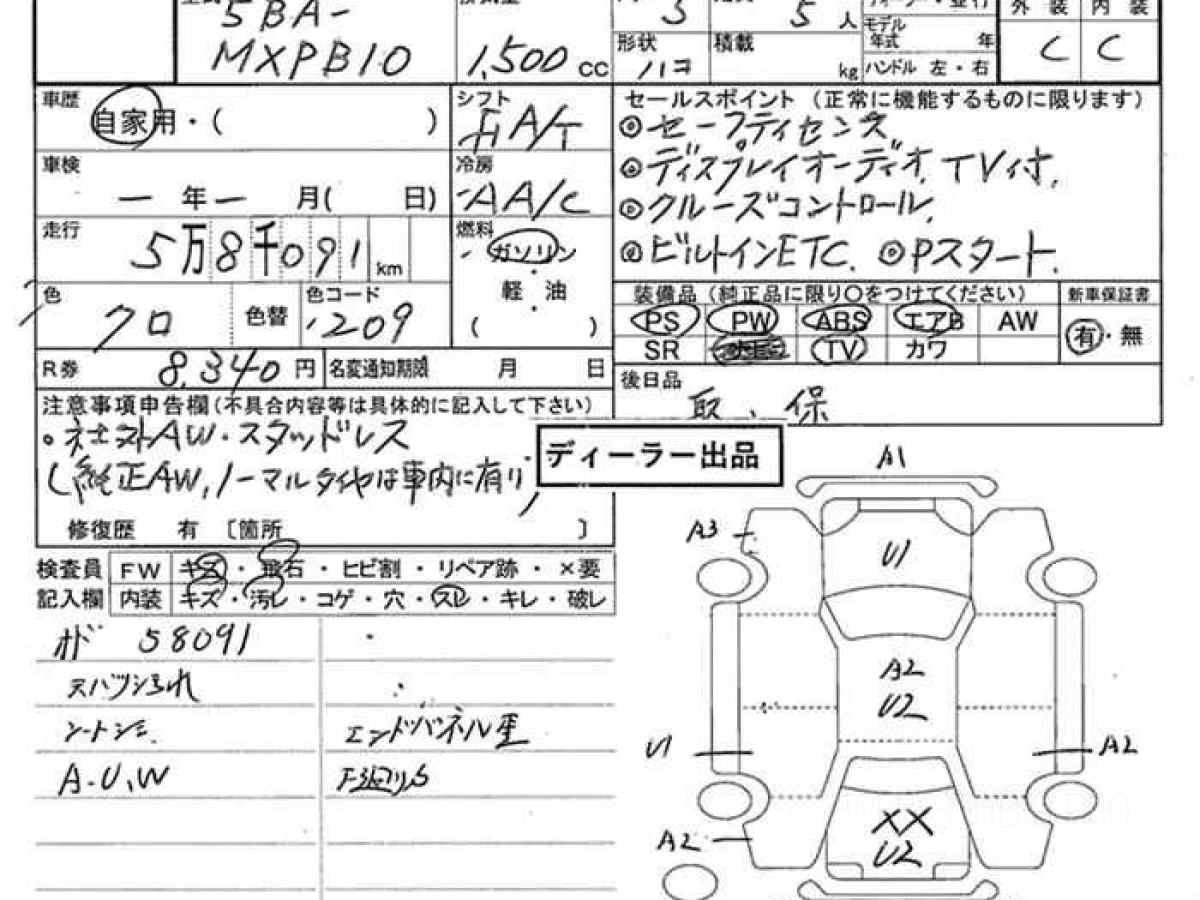 5BA-
3
5人
モデル
年式 年
外装 内装
MXPB10
1,500 cc
形状 ハコ
積載 kg
ハンドル 左・右
C C
車歴
自家用・( )
シフト
FA/T
セールスポイント (正常に機能するものに限ります)
◎セーフティセンス
◎ディスプレイオーディオ, TV付,
◎クルーズコントロール,
◎ビルトインETC. ◎Pスタート.
車検
ー年ー月( 日)
冷房
AA/C
走行
5万8千091km
燃料
ガソリン
・
軽油
・
( )
色
クロ
色替
色コード
209
装備品 (純正品に限り○をつけてください)
新車保証書
PS PW ABS エアB AW
SR TV カワ
有・無
R券 8,340円
名変通知期限 月 日
後日品
取、保
注意事項申告欄(不具合内容等は具体的に記入して下さい)
・社外AW・スタッドレス
(純正AW,ノーマルタイヤは車内に有り)
修復歴 有 〔箇所 〕
ディーラー出品
検査員 FW キズ・飛石・ヒビ割・リペア跡・×要
記入欄 内装 キズ・汚レ・コゲ・穴・スレ・キレ・破レ
オド 58091
シートシミ.
エンドパネル歪
A.U,W
A1
A3
U1
A2
U2
U1
A2
A2
XX
U2